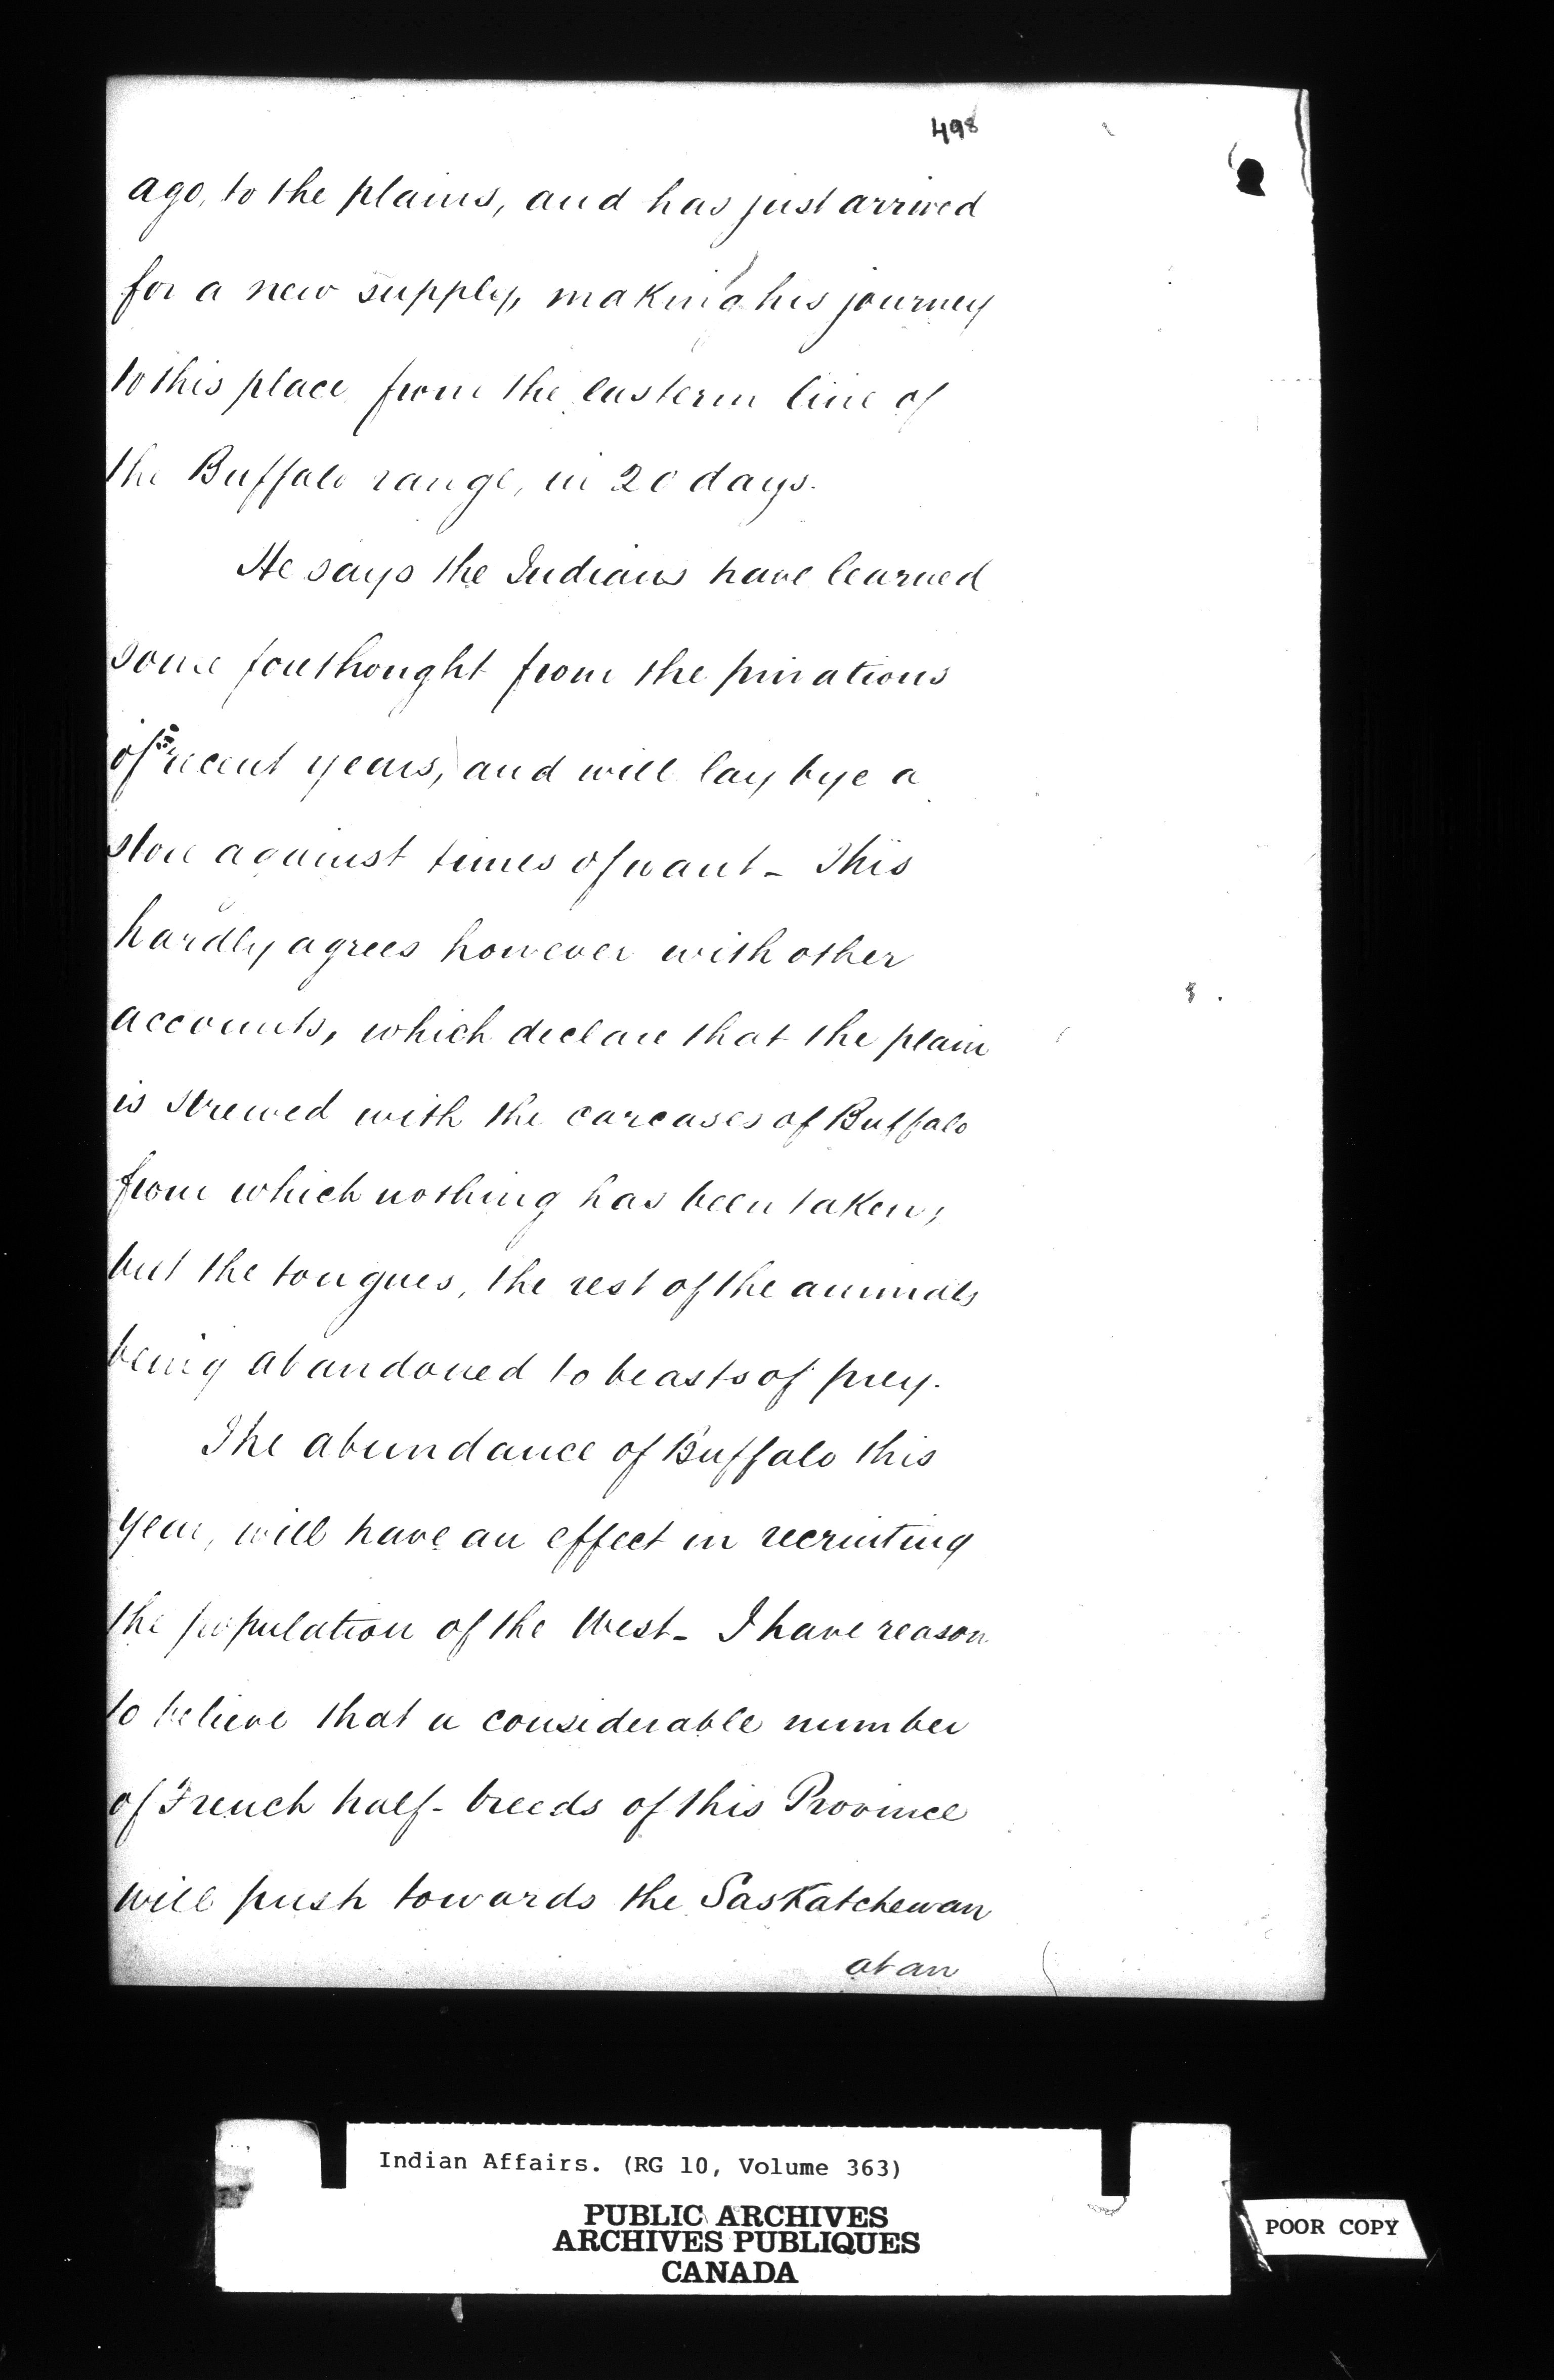 498
ago, to the plains, and has just arrived
for a new supply, making his journey
to this place from the eastern line of
the Buffalo range, in 20 days.
He says the Indians have learned
some forethought from the privations
of recent years, and will lay bye a
store against times of want - This
hardly agrees however with other
accounts, which declare that the plain
is strewed with the carcases of Buffalo
from which nothing has been taken,
but the tongues, the rest of the animals
being abandoned to beasts of prey.
The abundance of Buffalo this
year, will have an effect in recruiting
the population of the West - I have reason
to believe that a considerable number
of French half-breeds of this Province
will push towards the Saskatchewan
at an
Indian Affairs. (RG 10, Volume 363)
PUBLIC ARCHIVES
ARCHIVES PUBLIQUES
CANADA
POOR COPY